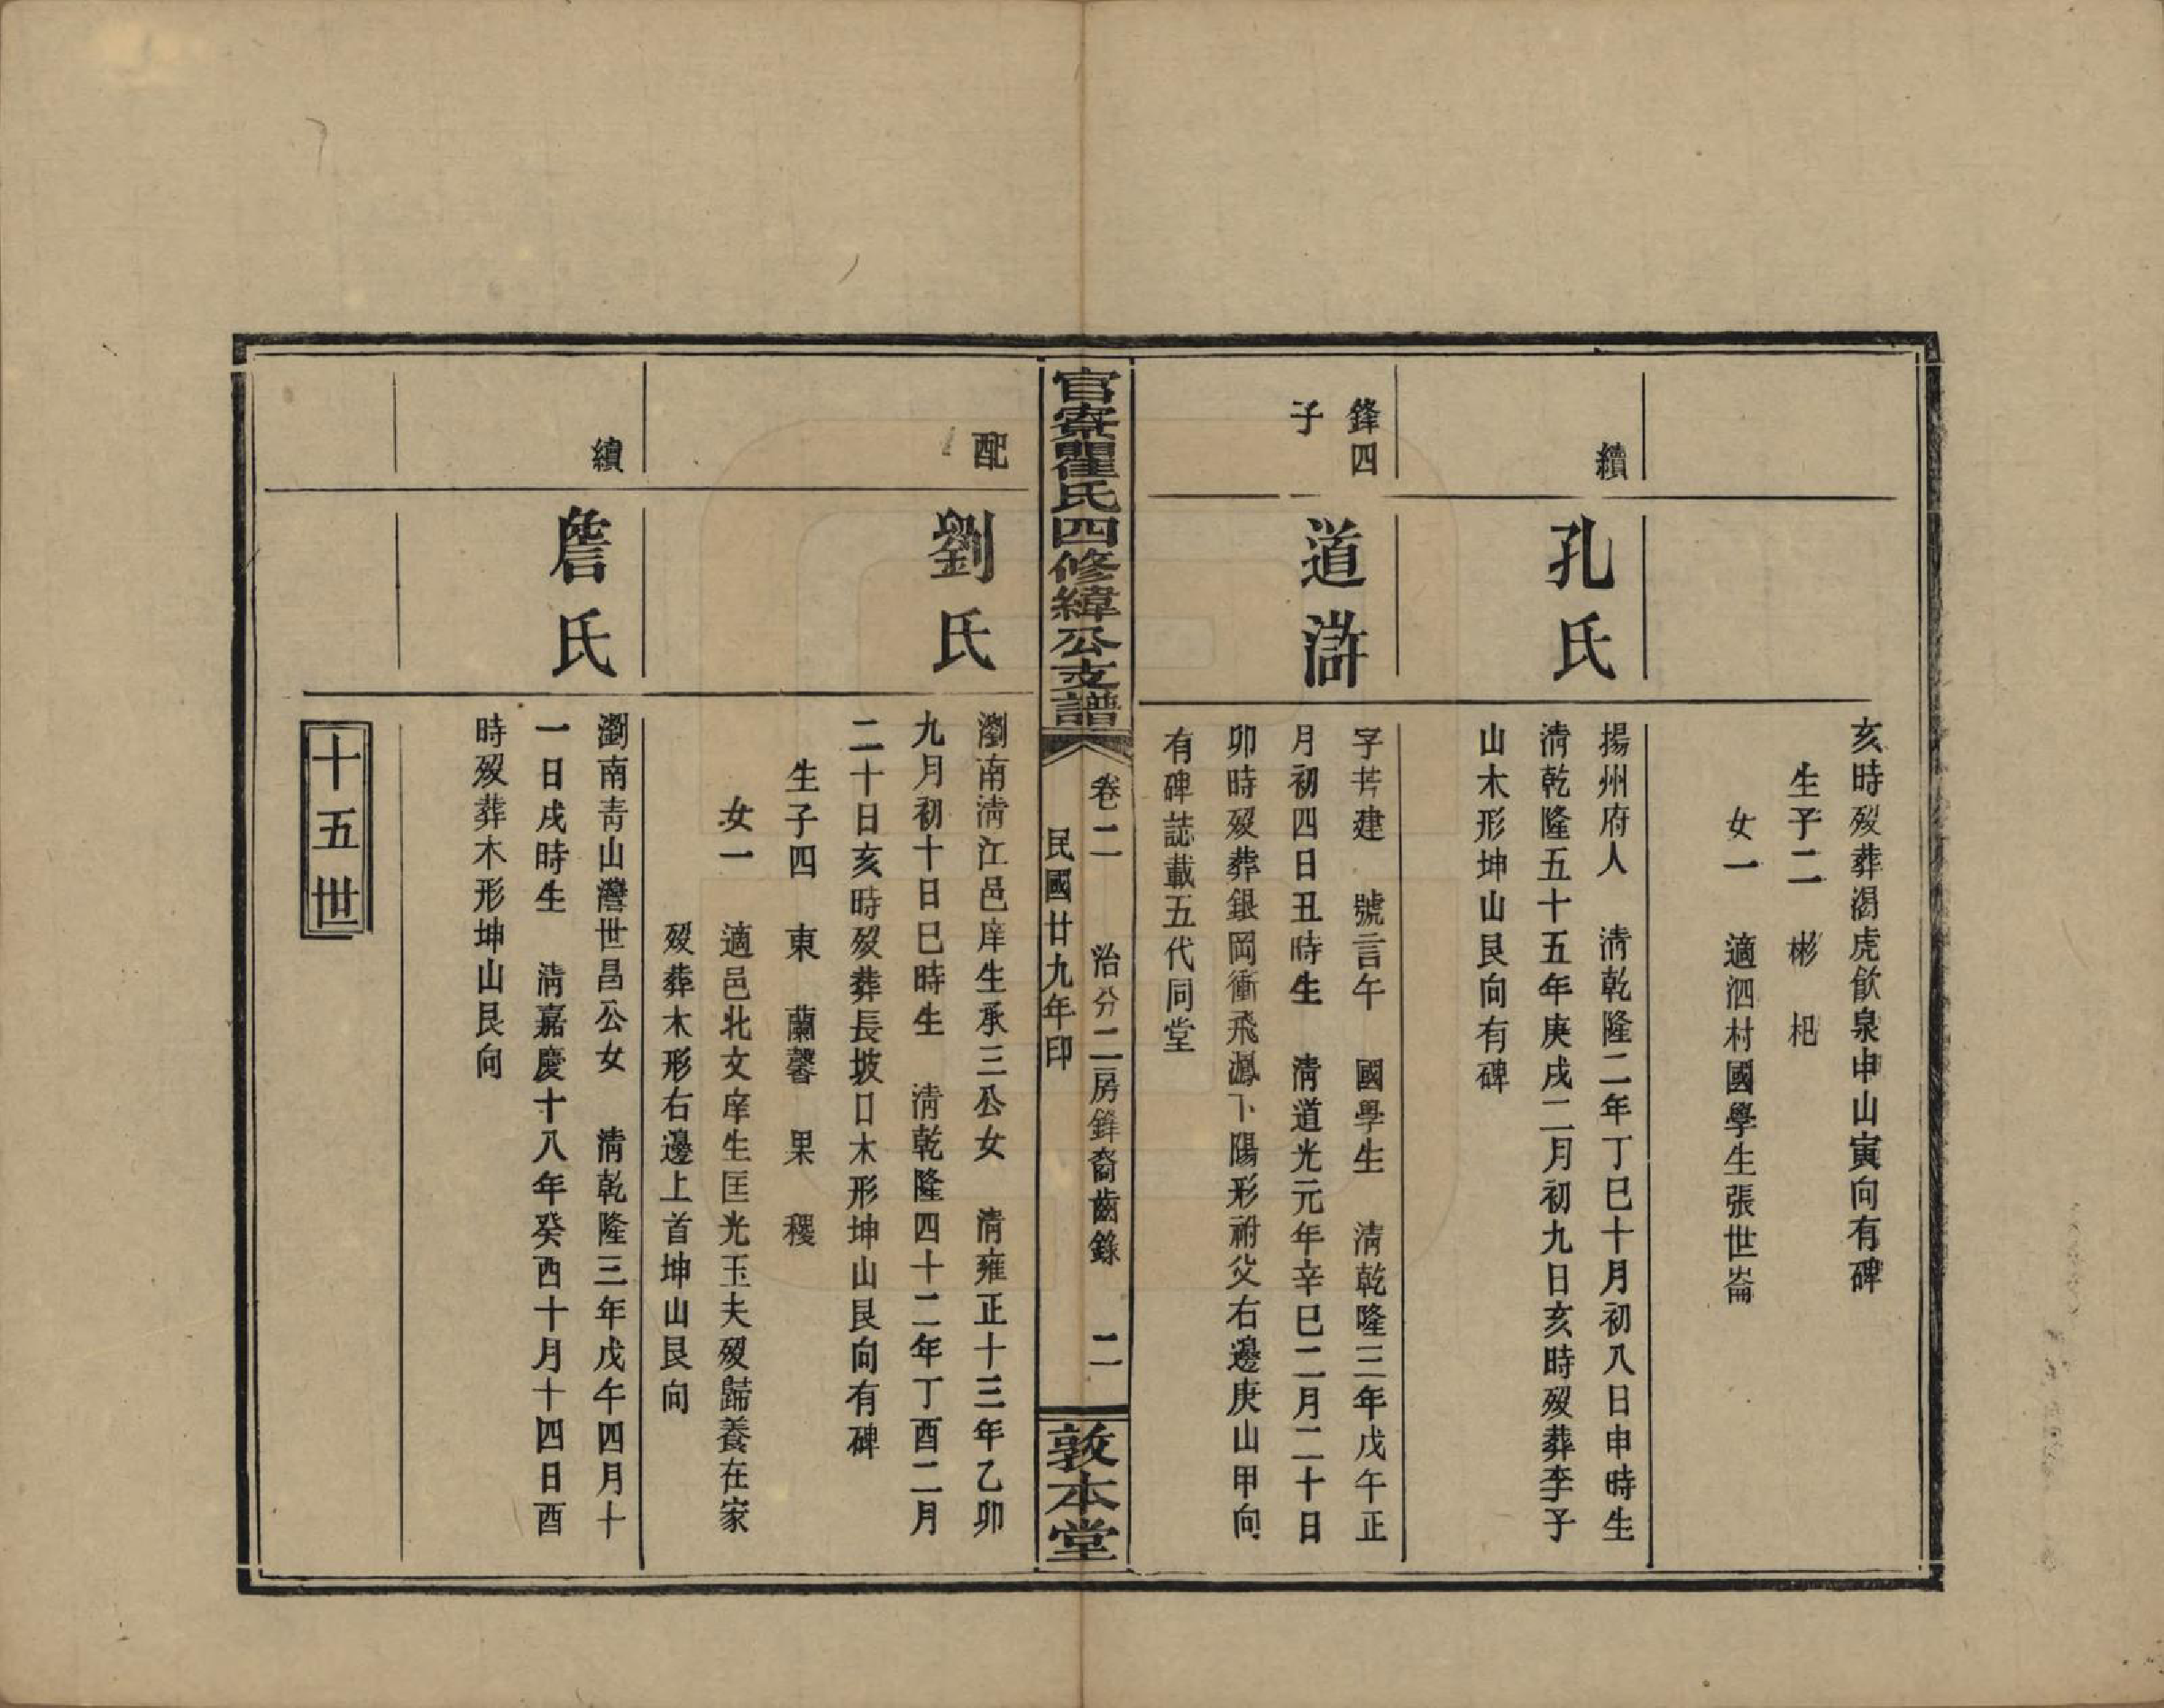 亥時歿葬渴虎飲泉申山寅向有碑
生子二　彬　杷
女一　適泗村國學生張世崙
續
孔氏
揚州府人　清乾隆二年丁巳十月初八日申時生
清乾隆五十五年庚戌二月初九日亥時歿葬李子
山木形坤山艮向有碑
鋒四
子
道滸
字芳建　號言午　國學生　清乾隆三年戊午正
月初四日丑時生　清道光元年辛巳二月二十日
卯時歿葬銀岡衝飛鳳下陽形祔父右邊庚山甲向
有碑誌載五代同堂
官寮瞿氏四修緯公支譜
卷二　治分二房鋒裔齒錄　二
民國廿九年印
敦本堂
配
劉氏
瀏南清江邑庠生承三公女　清雍正十三年乙卯
九月初十日巳時生　清乾隆四十二年丁酉二月
二十日亥時歿葬長坡口木形坤山艮向有碑
生子四　東　蘭馨　果　稷
女一　適邑北文庠生匡光玉夫歿歸養在家
歿葬木形右邊上首坤山艮向
續
詹氏
瀏南青山灣世昌公女　清乾隆三年戊午四月十
一日戌時生　清嘉慶十八年癸酉十月十四日酉
時歿葬木形坤山艮向
十五世